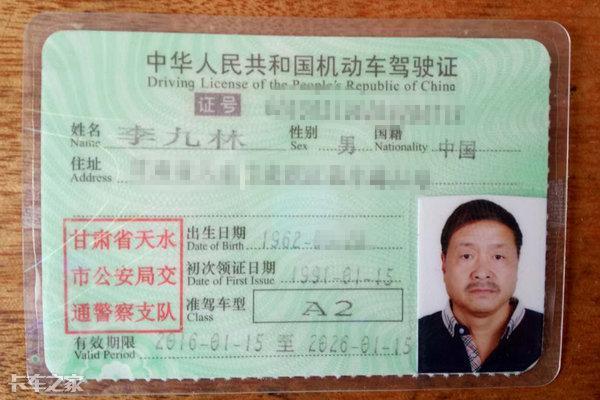 中华人民共和国机动车驾驶证
Driving License of the People's Republic of China
证号
姓名 李九林 性别 男 国籍 中国
Name Sex Nationality
住址
Address
出生日期 1962-
Date of Birth
初次领证日期 1991-01-15
Date of First Issue
准驾车型 A2
Class
甘肃省天水
市公安局交
通警察支队
有效期限 2016-01-15 至 2026-01-15
Valid Period
卡车之家